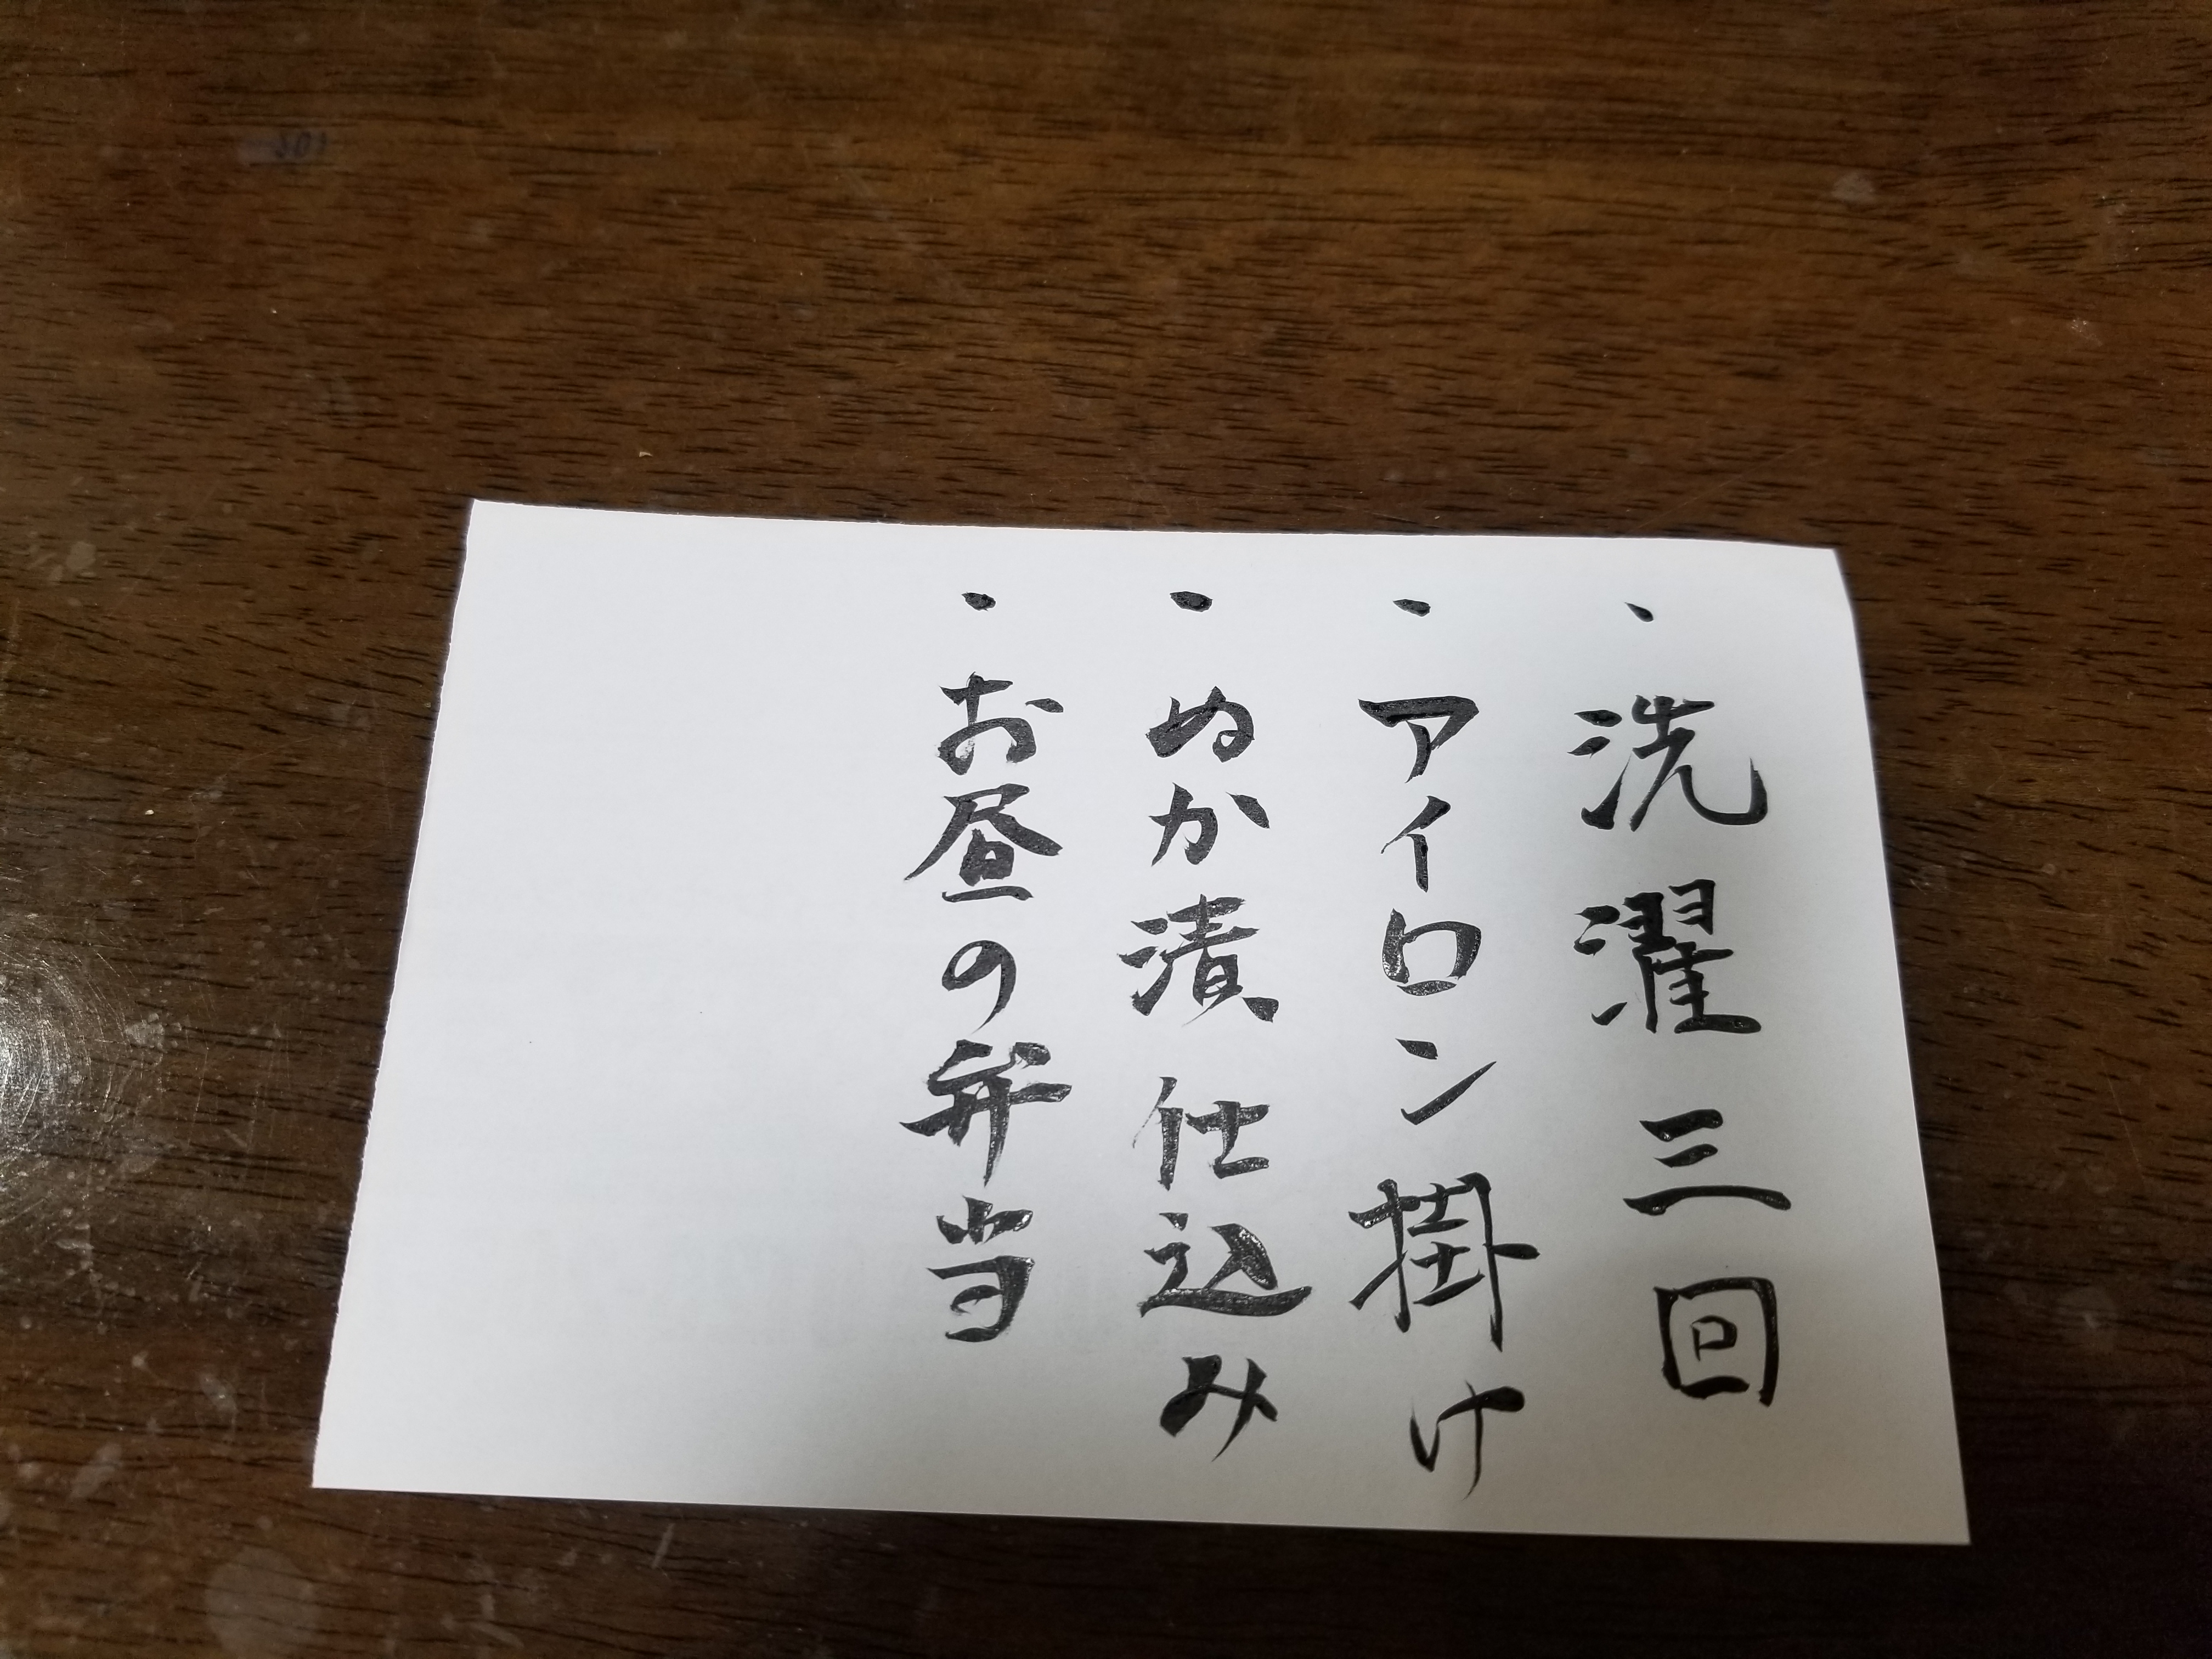 ・洗濯三回
・アイロン掛け
・ぬか漬仕込み
・お昼の弁当